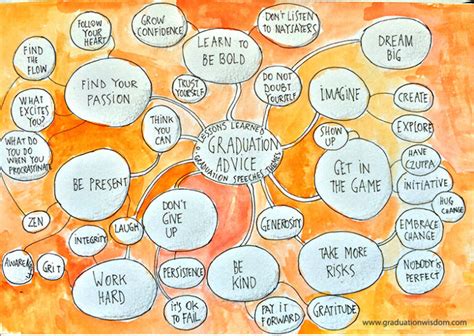 FOLLOW
YOUR
HEART
GROW
CONFIDENCE
DON'T LISTEN
TO NAYSAYERS
FIND
THE
FLOW
LEARN TO
BE BOLD
DREAM
BIG
FIND YOUR
PASSION
TRUST
YOURSELF
DO NOT
DOUBT
YOURSELF
IMAGINE
CREATE
WHAT
EXCITES
YOU?
THINK
YOU
CAN
LESSONS LEARNED
GRADUATION
ADVICE
GRADUATION SPEECHES THEMES
SHOW
UP
EXPLORE
WHAT DO
YOU DO
WHEN YOU
PROCRASTINATE
HAVE
CZUTPA
BE PRESENT
GET IN
THE GAME
INITIATIVE
HUG
CHANGE
ZEN
DON'T
GIVE
UP
LAUGH
GENEROSITY
EMBRACE
CHANGE
INTEGRITY
TAKE MORE
RISKS
AWARENESS
GRIT
WORK
HARD
PERSISTENCE
BE
KIND
NOBODY IS
PERFECT
IT'S OK
TO FAIL
PAY IT
FORWARD
GRATITUDE
www.graduationwisdom.com